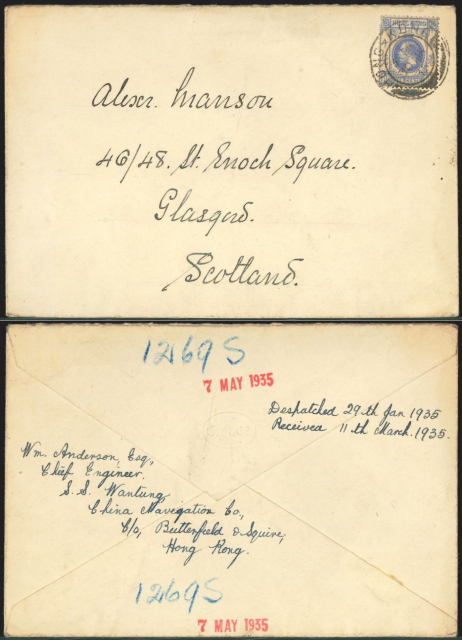 HONG KONG
Alexr. Manson
46/48. St. Enoch Square.
Glasgow.
Scotland.
12169 S
7 MAY 1935
Despatched 29th Jan 1935
Received 11th March. 1935.
Wm. Anderson, Esq.,
Chief Engineer.
S.S. Wantung,
China Navigation Co,
C/o, Butterfield & Squire,
Hong Kong.
1269 S
7 MAY 1935